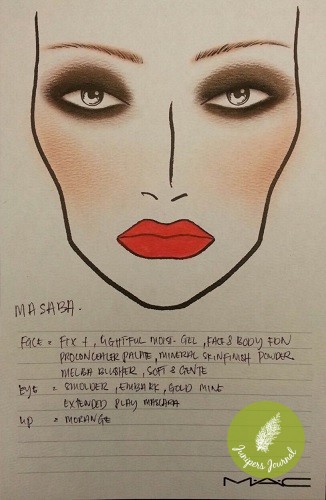 MASABA.
FACE = FIX +, LIGHTFUL MOIS-GEL, FACE & BODY FDN
PROLONGCEALER PALATE, MINERAL SKINFINISH POWDER
MELBA BLUSHER, SOFT & GENTE
EYE = SMOLDER, EMBARK, GOLD MINE
EXTENDED PLAY MASCARA
LIP = MORANGE
Junipers Journal
MAC